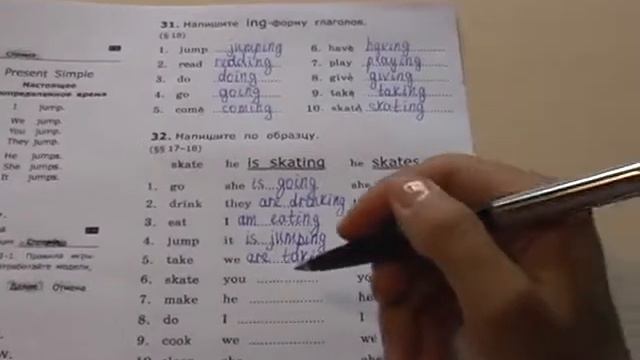 Present Simple
Настоящее
I jump.
We jump.
You jump.
They jump.
He jumps.
She jumps.
It jumps.
Правила игры
Отмена
31. Напишите ing-форму глаголов.
(§ 18)
1. jump jumping 6. have having
2. read reading 7. play playing
3. do doing 8. give giving
4. go going 9. take taking
5. come coming 10. skate skating
32. Напишите по образцу.
(§§ 17-18)
skate he is skating he skates
1. go she is going she
2. drink they are drinking
3. eat I am eating
4. jump it is jumping
5. take we are
6. skate you
7. make he he
8. do I I
9. cook we we